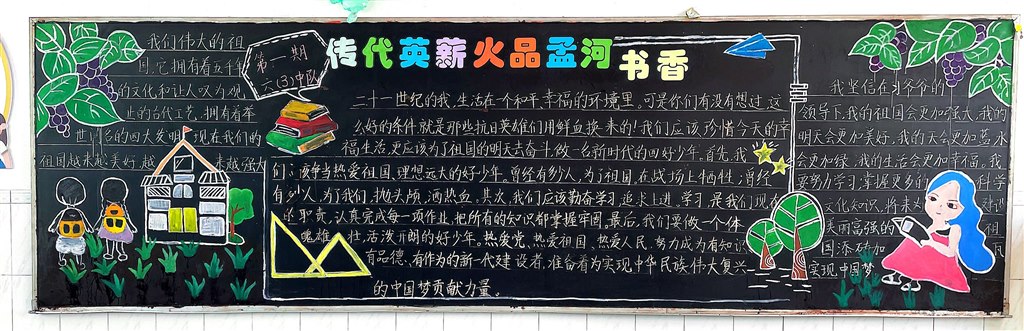 传代英薪火品孟河书香
第一期
六(3)中队
我们伟大的祖
国,它拥有着五千年
的文化和让人叹为观
止的古代工艺,拥有着举
世闻名的四大发明,现在我们的
祖国越来越美好,越来越强大
二十一世纪的我,生活在一个和平,幸福的环境里。可是你们有没有想过,这
么好的条件就是那些抗日英雄们用鲜血换来的!我们应该珍惜今天的幸
福生活,更应该为了祖国的明天去奋斗,做一名新时代的四好少年。首先,我
们应该争当热爱祖国,理想远大的好少年。曾经有多少人,为了祖国,在战场上牺牲;曾经
有多少人,为了我们,抛头颅,洒热血。其次,我们应该勤奋学习,追求上进。学习是我们现在
的职责,认真完成每一项作业,把所有的知识都掌握牢固。最后,我们要做一个体
魄雄壮,活泼开朗的好少年。热爱党、热爱祖国、热爱人民,努力成为有知识、
有品德、有作为的新一代建设者,准备着为实现中华民族伟大复兴
的中国梦贡献力量。
我坚信在习爷爷的
领导下,我的祖国会更加强大,我的
明天会更加美好,我的天会更加蓝,水
会更加绿,我的生活会更加幸福。我
要努力学习,掌握更多的科学
文化知识,将来
美丽富强的祖
国添砖加瓦
实现中国梦